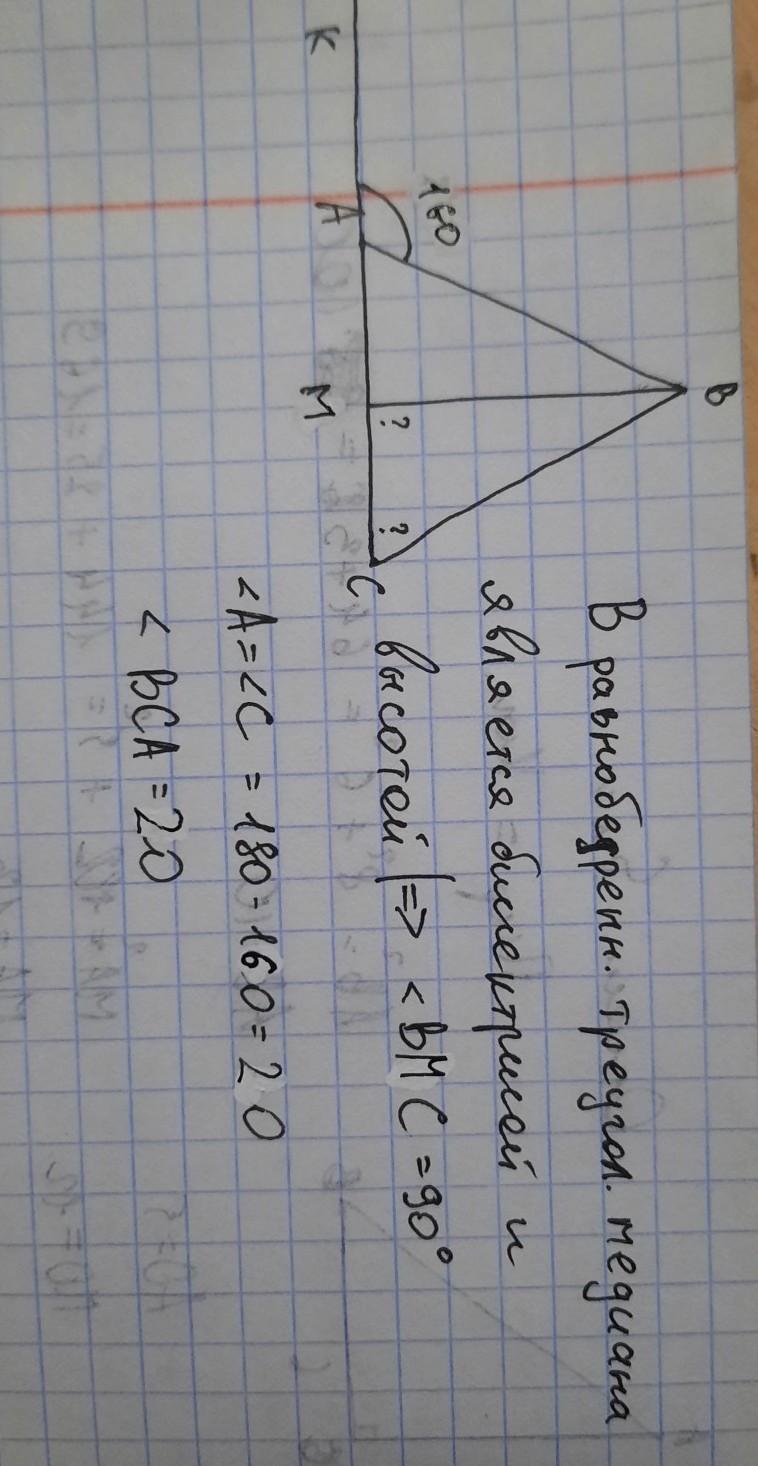 K
A
160
M
?
?
C
B
В равнобедренн. треугол. медиана
является биссектрисей и
высотей |=> <BMC = 90°
<A=<C = 180-160=20
< BCA=20